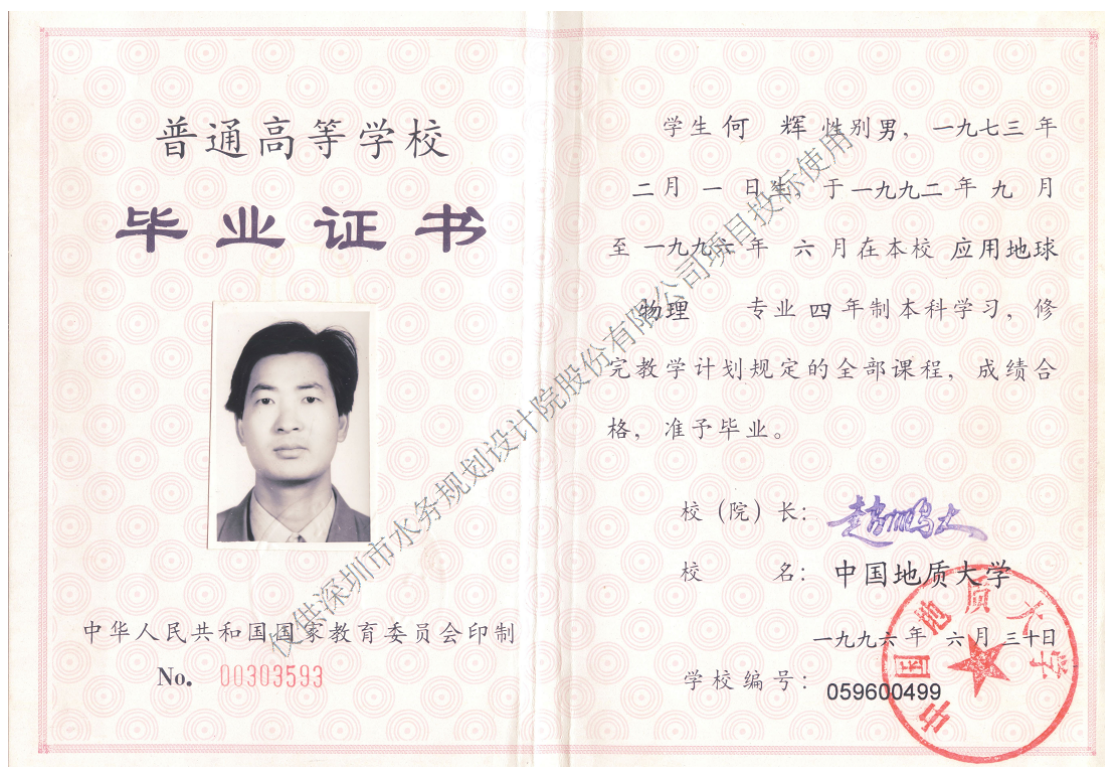 普通高等学校
毕业证书
中华人民共和国国家教育委员会印制
No. 00303593
学生何 辉 性别男，一九七三年
二月 一 日生，于一九九二年 九 月
至一九九六年 六 月在本校 应用地球
物理 专业 四 年制本科学习，修
完教学计划规定的全部课程，成绩合
格，准予毕业。
校（院）长：赵鹏大
校 名：中国地质大学
一九九六年 六月 三十日
学校编号：059600499
中国地质大学
仅供深圳市水务规划设计院股份有限公司项目投标使用